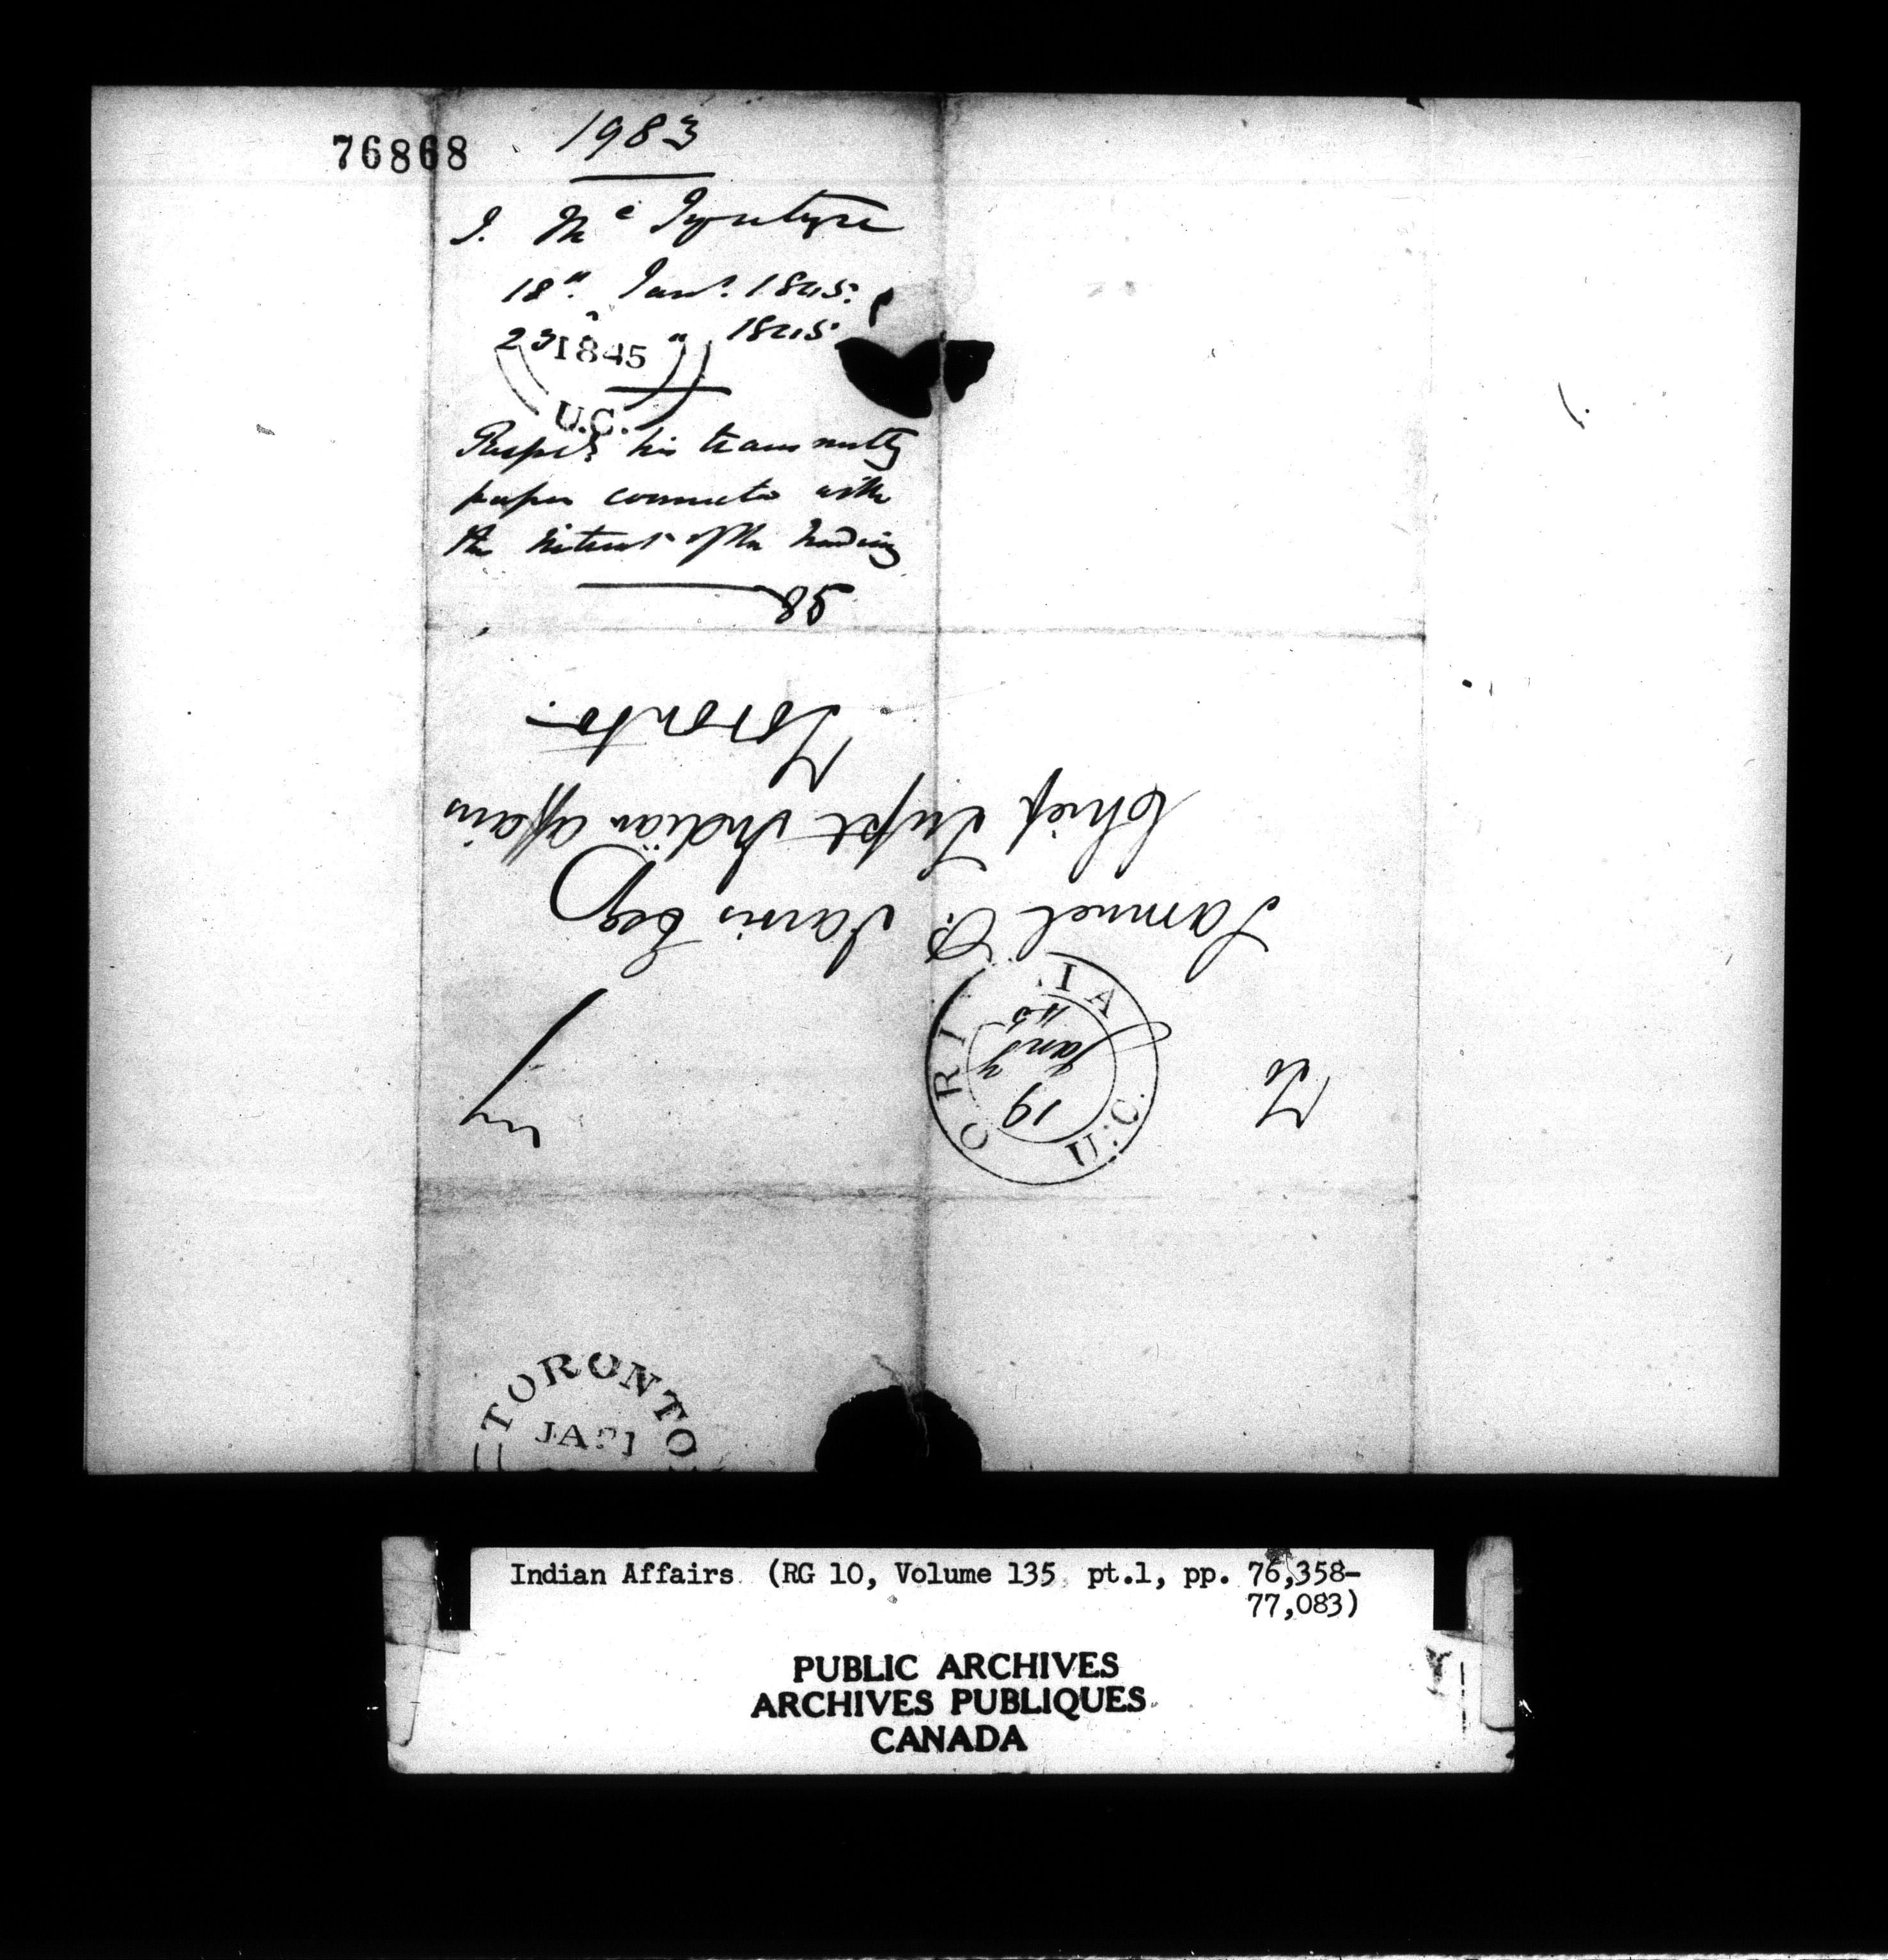 76868
1983
J. McIyntyre
18" Jany. 1845.
23 " 1845
1845
U.C.
Respectg his transmittg
paper connected with
the interest of the Indians
To
Samuel P. Jarvis Esq
Chief Supt Indian Affairs
Toronto.
ORILLIA
19
Jany
45
U.C.
TORONTO
JA 21
Indian Affairs (RG 10, Volume 135 pt.1, pp. 76,358-
77,083)
PUBLIC ARCHIVES
ARCHIVES PUBLIQUES
CANADA